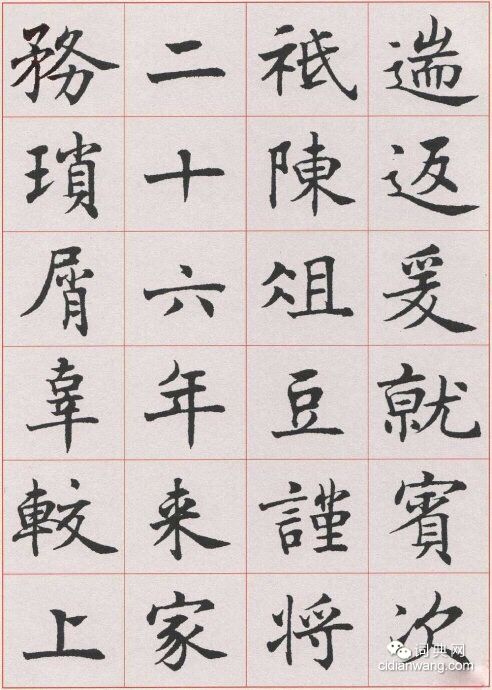 遄返爰就賓次
祗陳俎豆謹将
二十六年来家
務瑣屑辜較上
词典网
cidianwang.com